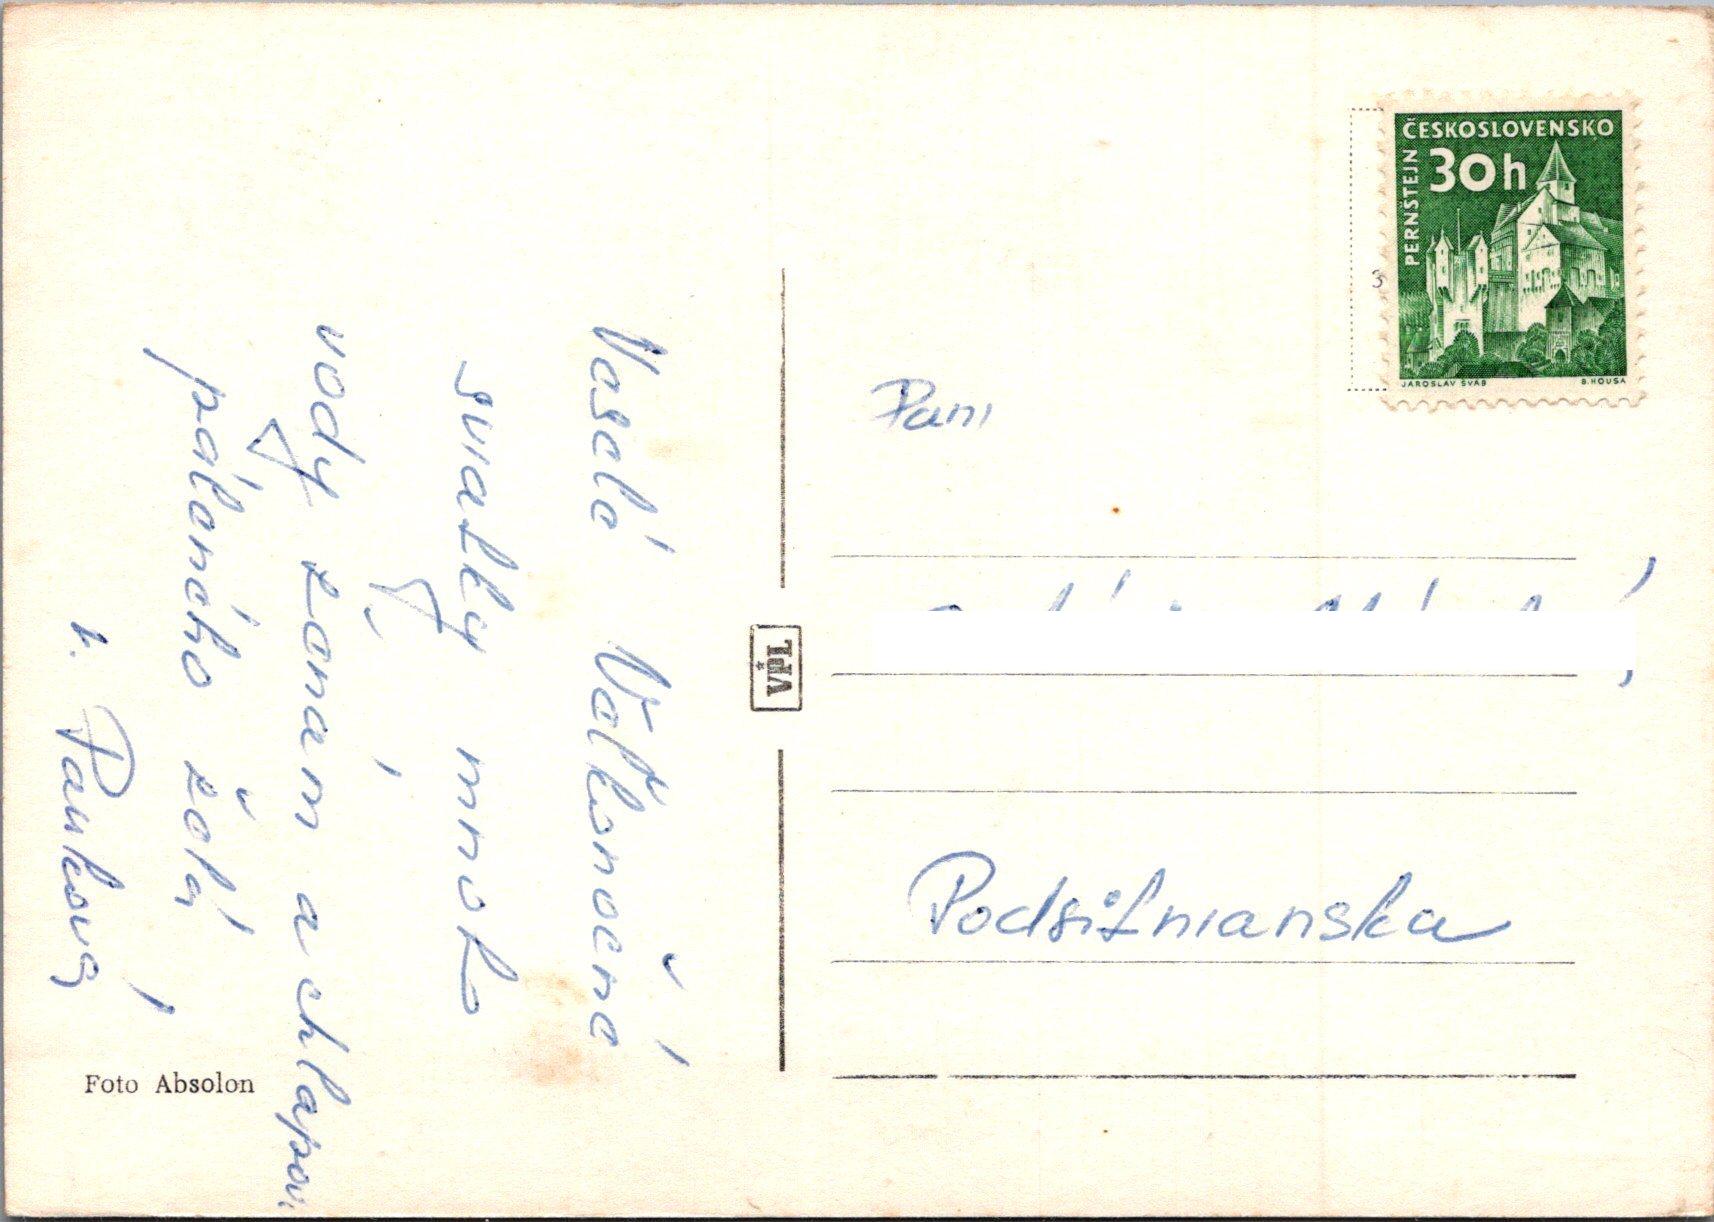 Veselé Veľkonočné
sviatky mnoho
vody ženám a chlapovi
páleného želá
r. Pauková
Foto Absolon
VPL
ČESKOSLOVENSKO
30h
PERNŠTEJN
JAROSLAV ŠVÁB
B. HOUSA
3
Pani
Podsitnianska